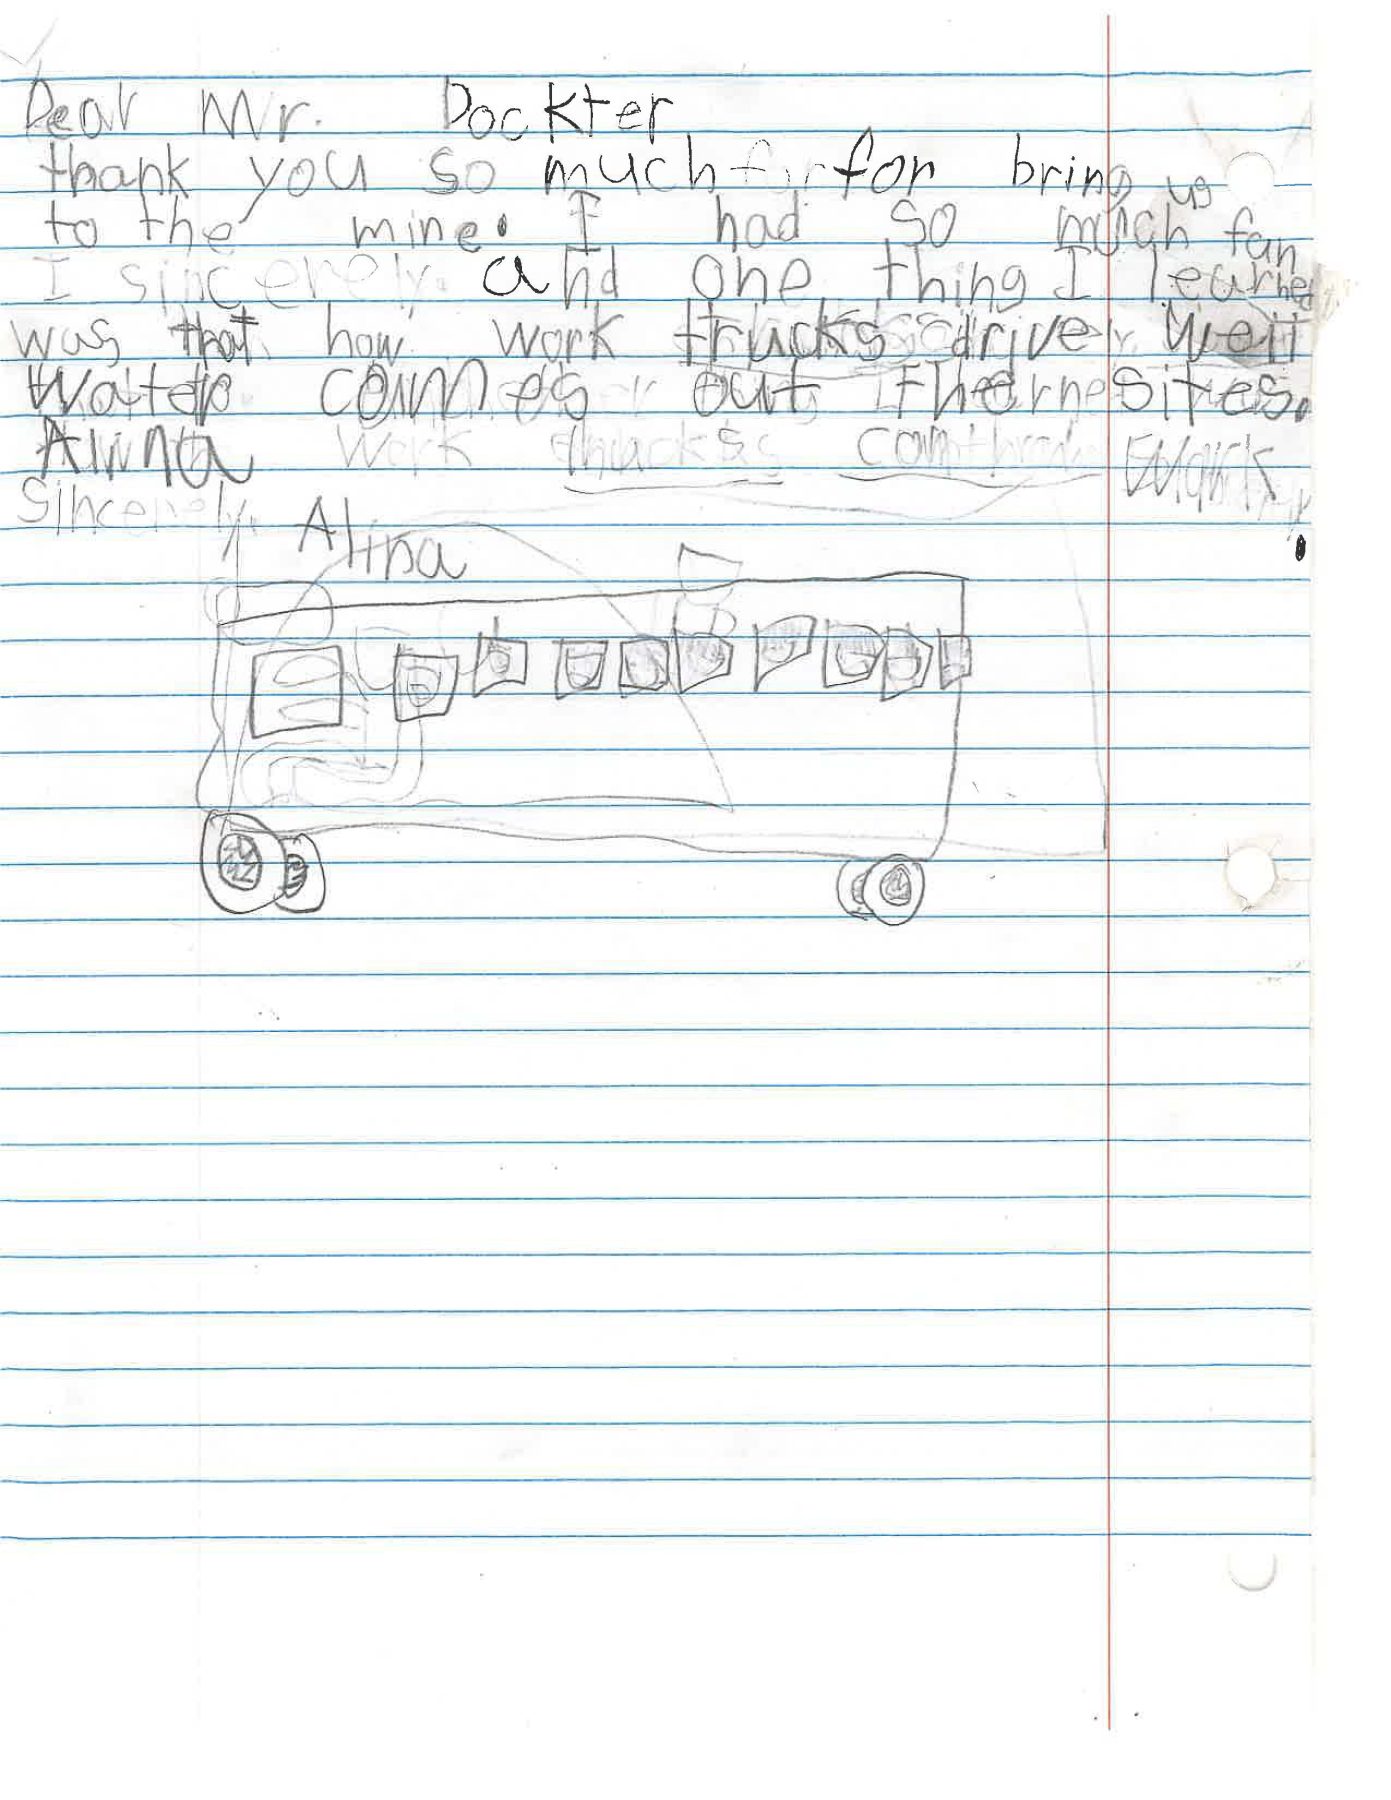 Dear Mr. Dockter
thank you so much for bring us
to the mine. I had so much fun
and one thing I learned
was that how work trucks drive well
Water comes out sites.
Alina
Sincerely, Alina